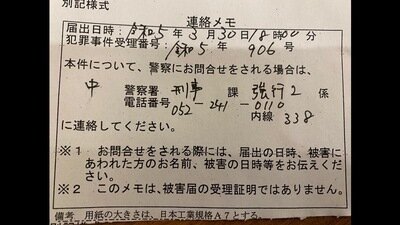 別記様式
連絡メモ
届出日時：令和5年3月30日18時00分
犯罪事件受理番号：令和5年 906号
本件について、警察にお問合せをされる場合は、
中 警察署 刑事 課 強行2 係
電話番号 052-241-0110
内線 338
に連絡してください。
※1 お問合せをされる際には、届出の日時、被害に
あわれた方のお名前、被害の日時等をお伝えくだ
さい。
※2 このメモは、被害届の受理証明ではありません。
備考 用紙の大きさは、日本工業規格A7とする。